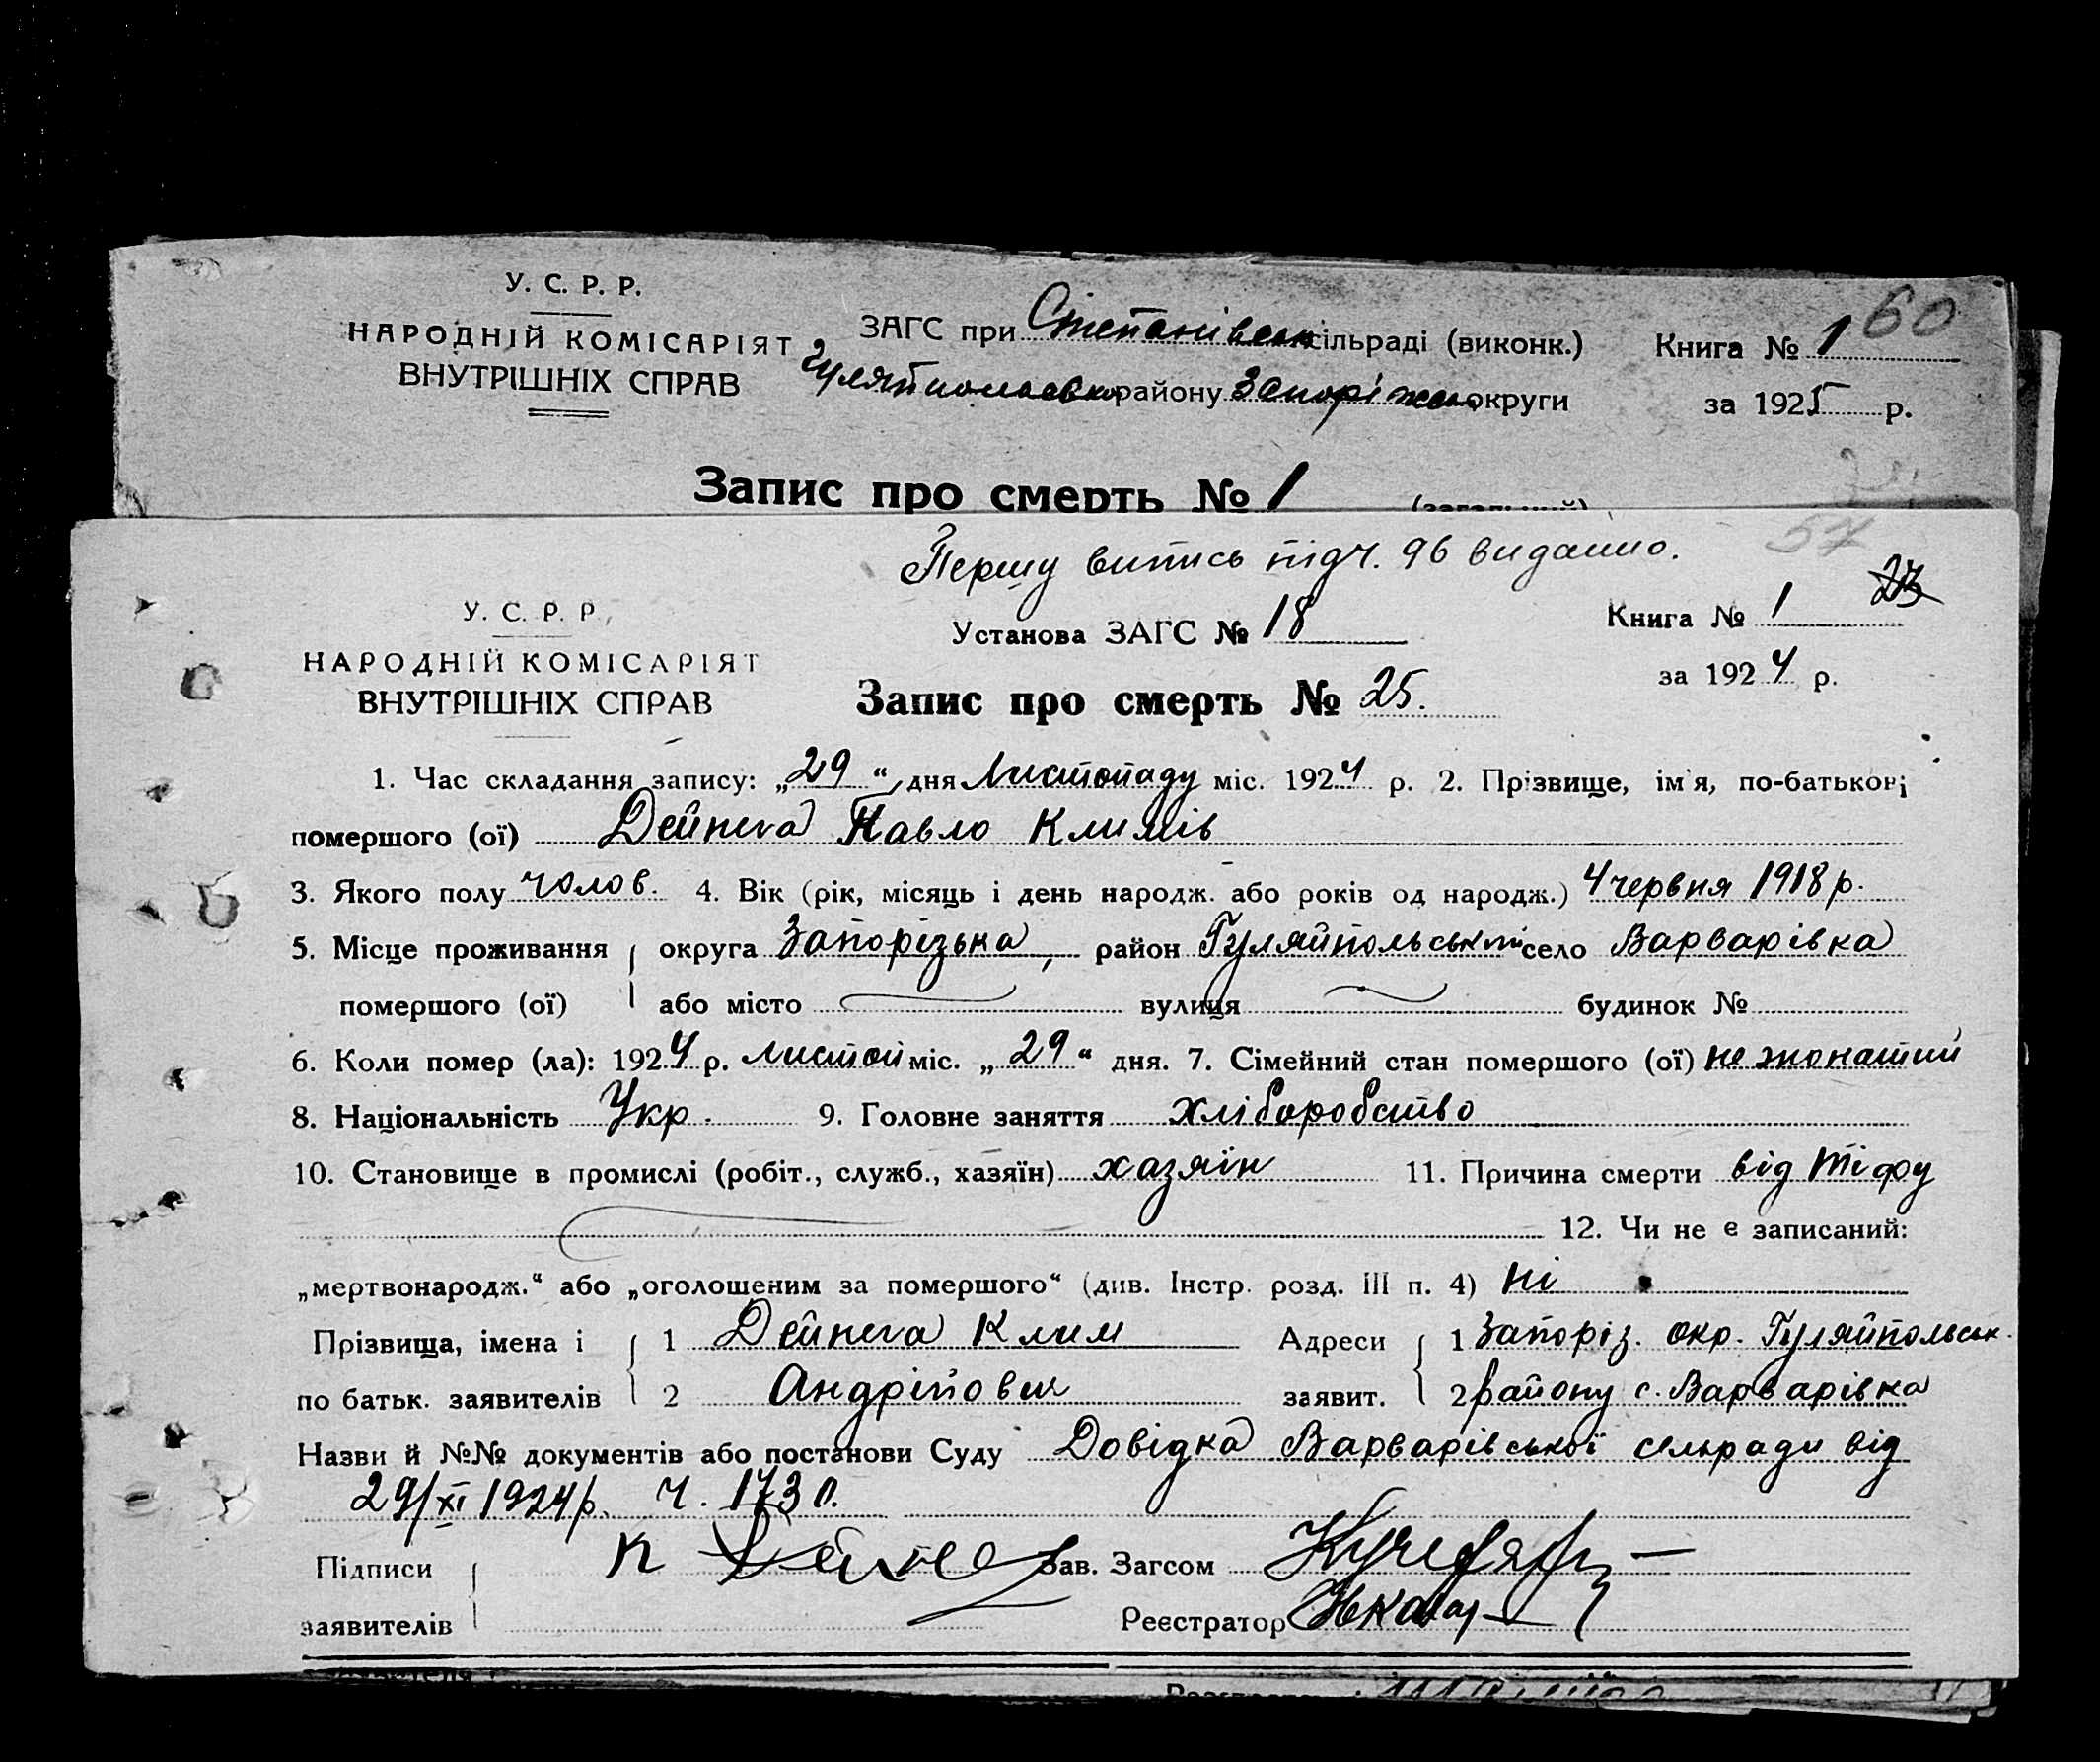 У. С. Р. Р.
НАРОДНІЙ КОМІСАРІЯТ
ВНУТРІШНІХ СПРАВ
ЗАГС при Степанівськ сільраді (виконк.)
Гуляйпольськ району Запоріжськ округи
Книга № 1 60
за 1925 р.
Запис про смерть № 1
57
Першу випись під ч. 96 видано.
У. С. Р. Р.
НАРОДНІЙ КОМІСАРІЯТ
ВНУТРІШНІХ СПРАВ
Установа ЗАГС № 18
Книга № 1 23
за 1924 р.
Запис про смерть № 25.
1. Час складання запису: „29“ дня Листопаду міс. 1924 р. 2. Прізвище, ім'я, по-батькові
помершого (ої) Дейнега Павло Климів
3. Якого полу чолов. 4. Вік (рік, місяць і день народж. або років од народж.) 4 червня 1918 р.
5. Місце проживання округа Запорізька, район Гуляйпольський село Варварівка
помершого (ої) або місто вулиця будинок №
6. Коли помер (ла): 1924 р. листоп міс. „29“ дня. 7. Сімейний стан помершого (ої) не жонатий
8. Національність Укр. 9. Головне заняття хліборобство
10. Становище в промислі (робіт., служб., хазяїн) хазяїн 11. Причина смерти від тіфу
12. Чи не є записаний:
„мертвонародж.“ або „оголошеним за помершого“ (див. Інстр. розд. III п. 4) ні
Прізвища, імена і 1 Дейнега Клим Адреси 1 Запоріз. окр. Гуляйпольськ.
по батьк. заявителів 2 Андрійович заявит. 2 району с. Варварівка
Назви й №№ документів або постанови Суду Довідка Варварівської сельради від
29/XI 1924 р. ч. 1730.
Підписи К Дейнега Зав. Загсом
заявителів Реєстратор